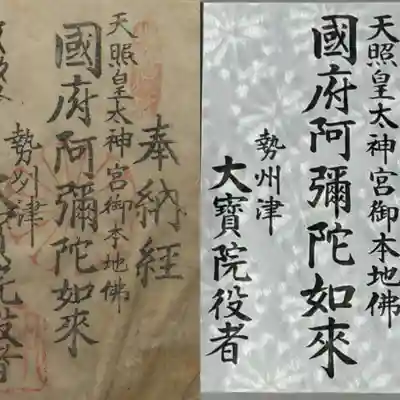 奉納経
天照皇太神宮御本地佛
國府阿彌陀如來
勢州津
院役者
天照皇太神宮御本地佛
國府阿彌陀如來
勢州津
大寶院役者